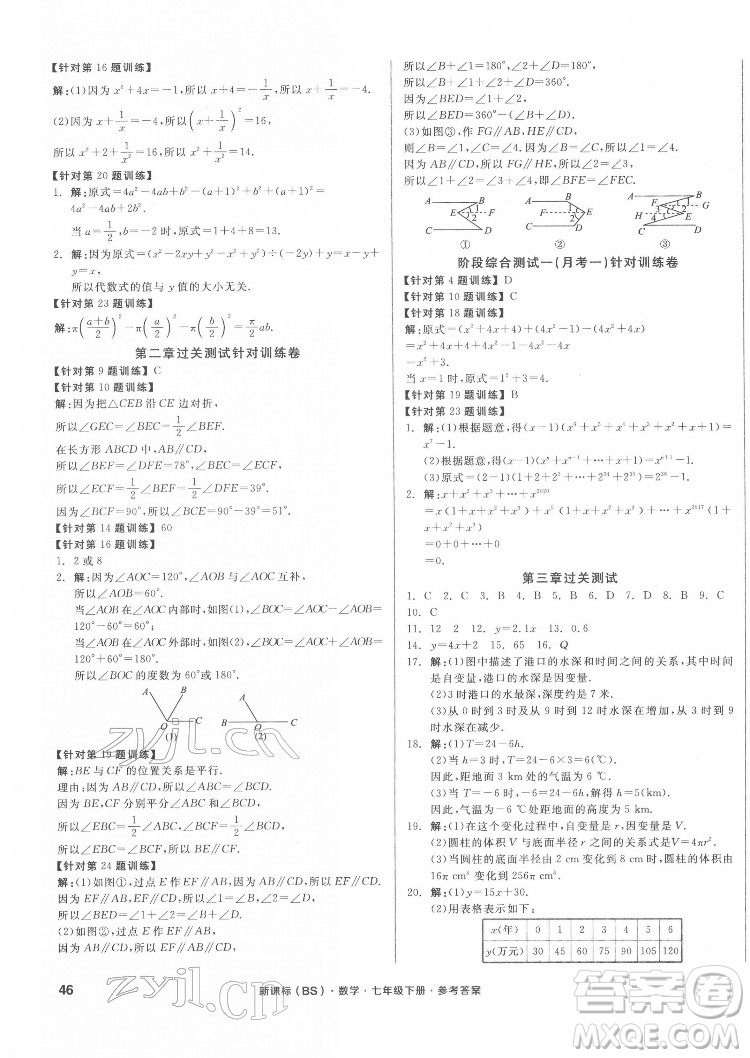 【针对第 16 题训练】
解:(1)因为 x²+4x=-1,所以 x+4=-1/x,所以 x+1/x=-4.
(2)因为 x+1/x=-4,所以(x+1/x)²=16,
所以 x²+2+1/x²=16,所以 x²+1/x²=14.
【针对第 20 题训练】
1. 解:原式=4a²-4ab+b²-(a+1)²+(a+1)²=
4a²-4ab+2b².
当 a=1/2,b=2 时,原式=1+4+8=
2. 解:因为原式=(x²-2xy+x²)÷(-x)-y+y=
所以代数式的值与 y 值的大小无关.
【针对第 23 题训练】
解:π((a+b)/2)²-π(a/2)²-π(b/2)²=π/2 ab.
第二章过关测试针对训练卷
【针对第 9 题训练】C
【针对第 10 题训练】
解:因为把△CEB 沿 CE 边对折,
所以∠GEC=∠BEC=1/2∠BEF.
在长方形 ABCD 中,因为 AB∥CD,
所以∠BEF=∠DFE=78°,∠BEC=∠ECF.
所以∠ECF=∠BEC=1/2∠BEF=1/2∠DFE=39°.
因为 CG∥EF,所以∠BCE=∠BEC=39°.
【针对第 14 题训练】60
【针对第 16 题训练】
1. 2 或 8
2. 解:因为∠AOC=120°,∠AOB 与∠AOC 互补,
所以∠AOB=60°.
当∠AOB 在∠AOC 内部时,如图(1),∠BOC=∠AOC-∠AOB=
120°-60°=60°;
当∠AOB 在∠AOC 外部时,如图(2),∠BOC=∠AOC+∠AOB=
120°+60°=180°.
所以∠BOC 的度数为 60°或 180°.
A B O C (1) A B O C (2)
【针对第 19 题训练】
解:BE 与 CF 的位置关系是平行.
理由:因为 AB∥CD,所以∠ABC=∠BCD.
因为 BE,CF 分别平分∠ABC 和∠BCD,
所以∠EBC=1/2∠ABC,∠BCF=1/2∠BCD,
所以∠EBC=∠BCF,所以 BE∥CF.
【针对第 24 题训练】
解:(1)如图①,过点 E 作 EF∥AB,则∠B=∠1.
因为 EF∥AB,AB∥CD,所以 EF∥CD,所以∠D=∠2,
所以∠BED=∠1+∠2=∠B+∠D.
(2)如图②,过点 E 作 EF∥AB,
因为 EF∥AB,AB∥CD,所以 EF∥CD,
所以∠B+∠1=180°,∠2+∠D=180°.
所以∠BED=360°-(∠B+∠D).
因为∠BED=∠1+∠2,
所以∠BED=360°-(∠B+∠D).
(3)如图③,作 FG∥AB,HE∥CD,
则∠B=∠1,∠2=∠3,∠4=∠D,
所以∠B+∠FED=∠BFE+∠D.
① ② ③
阶段综合测试一(月考一)针对训练卷
【针对第 4 题训练】D
【针对第 10 题训练】C
【针对第 18 题训练】
解:原式=(x²+4x+4)+(4x²-1)-(4x²+4x)
=x²+4x+4+4x²-1-4x²-4x
=x²+3.
当 x=1 时,原式=1+3=4.
【针对第 19 题训练】B
【针对第 23 题训练】
1. 解:(1)根据题意,得(x-1)(x⁶+x⁵+x⁴+x³+x²+x+1)=
x⁷-1.
(2)根据题意,得(x-1)(xⁿ+xⁿ⁻¹+…+x+1)=xⁿ⁺¹-1.
(3)原式=(2-1)(1+2+2²+…+2³⁴+2³⁵)=2³⁶-1.
2. 解:x+x²+x³+…+x²⁰²⁰
=x(1+x+x²+x³)+x⁵(1+x+x²+x³)+…+x²⁰¹⁷(1+x+x²+x³)
=0+0+…+0
=0.
第三章过关测试
1. C 2. C 3. C 4. B 5. B 6. D 7. B 8. D 9. C
10. C
11. 12 2 12. y=2.1x 13. 0.6
14. y=4x+2 15. 65 16. Q
17. 解:(1)图中描述了港口的水深和时间之间的关系,其中时间
是自变量,港口的水深是因变量.
(2)3时港口的水最深,深度约是 7 米.
(3)从 0 时到 3 时及从 9 时到 15 时水深在增加,从 3 时到 9
时水深在减少.
18. 解:(1)T=24-6h.
(2)当 h=3 时,T=24-6×3=6(℃).
因此,距地面 3 km 处的气温为 6 ℃.
(3)当 T=-6 时,-6=24-6h,解得 h=5(km).
因此,气温为-6 ℃处距地面的高度为 5 km.
19. 解:(1)在这个变化过程中,自变量是 r,因变量是 V.
(2)圆柱的体积 V 与底面半径 r 的关系式是 V=4πr².
(3)当圆柱的底面半径由 2 cm 变化到 8 cm 时,圆柱的体积由
16π cm³变化到 256π cm³.
20. 解:(1)y=15x+30.
(2)用表格表示如下:
x(年) 0 1 2 3 4 5 6
y(万元) 30 45 60 75 90 105 120
46
新课标(BS)·数学·七年级下册·参考答案
zyjl.cn
作业精灵
MATHS120.COM